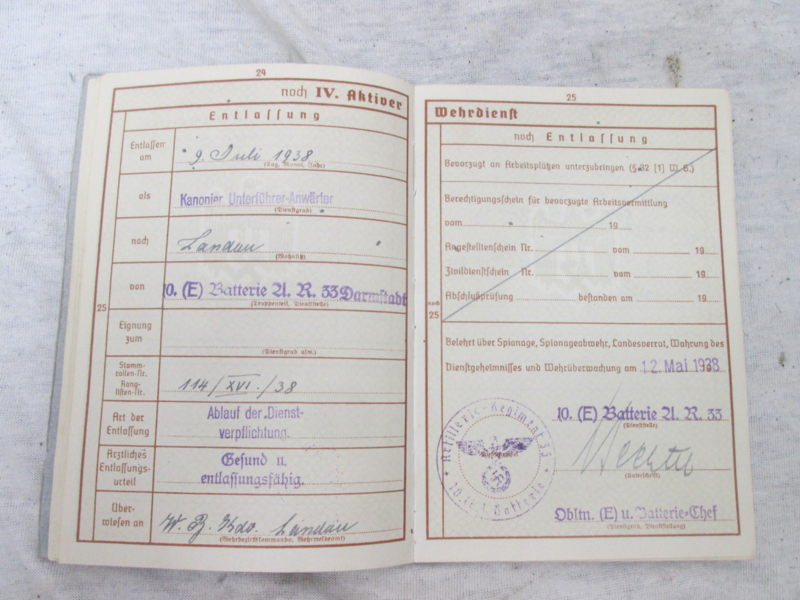 24
noch IV. Aktiver
Entlassung
Entlassen am
9. Juli 1938
(Tag, Monat, Jahr)
als
Kanonier Unterführer-Anwärter
(Dienstgrad)
nach
Landau "
(Wohnsitz)
von
10. (E) Batterie A. R. 33 Darmstadt
(Truppenteil, Dienststelle)
25
Eignung zum
(Dienstgrad usw.)
Stammrollen-Nr.
Ranglisten-Nr.
114/XVI./38
Art der Entlassung
Ablauf der Dienst-
verpflichtung.
Ärztliches Entlassungs-
urteil
Gesund u.
entlassungsfähig.
Über-
wiesen an
W. B. Kdo. Landau
(Wehrbezirkskommando, Wehrmeldeamt)
25
Wehrdienst
noch Entlassung
Bevorzugt an Arbeitsplätzen unterzubringen (§ 32 [1] W G.)
Berechtigungsschein für bevorzugte Arbeitsvermittlung
vom 19
Angestelltenschein Nr. vom 19
Zivildienstschein Nr. vom 19
Abschlußprüfung bestanden am 19
noch 25
Belehrt über Spionage, Spionageabwehr, Landesverrat, Wahrung des
Dienstgeheimnisses und Wehrüberwachung am 12. Mai 1938
10. (E) Batterie A. R. 33
(Dienststelle)
Artillerie-Regiment 33
10. (E) Batterie
(Unterschrift)
Obltn. (E) u. Batterie-Chef
(Dienstgrad, Dienststellung)